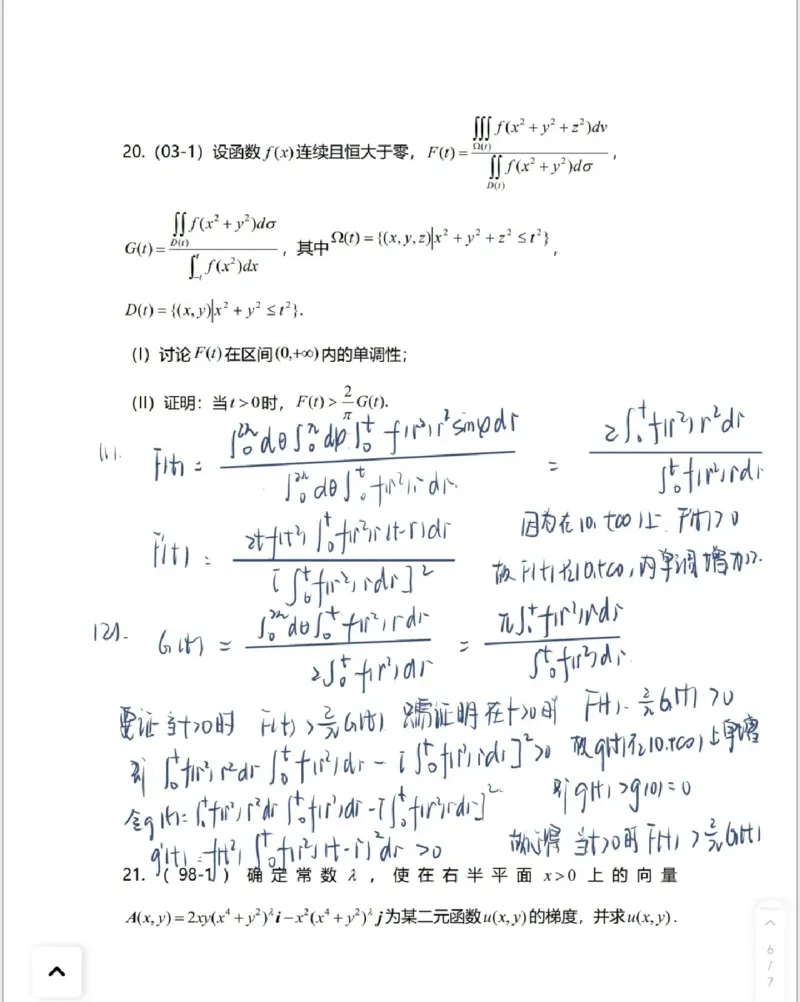 20. (03-1) 设函数 f(x) 连续且恒大于零, F(t) = ∭_{Ω(t)} f(x² + y² + z²)dv / ∬_{D(t)} f(x² + y²)dσ,
G(t) = ∬_{D(t)} f(x² + y²)dσ / ∫_{-t}^{t} f(x²)dx, 其中 Ω(t) = {(x, y, z)|x² + y² + z² ≤ t²},
D(t) = {(x, y)|x² + y² ≤ t²}.
(I) 讨论 F(t) 在区间(0,+∞)内的单调性;
(II) 证明: 当 t > 0 时, F(t) > 2/π G(t).
(1). F(t) = ∫₀^{2π} dθ ∫₀^π dφ ∫₀^t f(r²) r² sinφ dr / ∫₀^{2π} dθ ∫₀^t f(r²) r dr = 2∫₀^t f(r²) r² dr / ∫₀^t f(r²) r dr
F'(t) = 2t f(t²) ∫₀^t f(r²) r (t-r) dr / [∫₀^t f(r²) r dr]² 因为在(0, +∞)上 F'(t) > 0
故 F(t) 在(0,+∞)内单调增加.
(2). G(t) = ∫₀^{2π} dθ ∫₀^t f(r²) r dr / 2∫₀^t f(r²) dr = π∫₀^t f(r²) r dr / ∫₀^t f(r²) dr
要证当 t>0 时 F(t) > 2/π G(t) 只需证明在 t>0 时 F(t) - 2/π G(t) > 0
则 ∫₀^t f(r²) r² dr ∫₀^t f(r²) dr - [∫₀^t f(r²) r dr]² > 0 故 g(t) 在(0,+∞)上单增
令 g(t) = ∫₀^t f(r²) r² dr ∫₀^t f(r²) dr - [∫₀^t f(r²) r dr]² 则 g(t) > g(0) = 0
g'(t) = f(t²) ∫₀^t f(r²) (t-r)² dr > 0 当 t>0 时 F(t) > 2/π G(t)
21. ( 98-1 ) 确定常数 λ , 使在右半平面 x>0 上的向量
A(x, y) = 2xy(x⁴ + y²)^λ i − x²(x⁴ + y²)^λ j 为某二元函数 u(x, y) 的梯度, 并求 u(x, y).
6
/
7